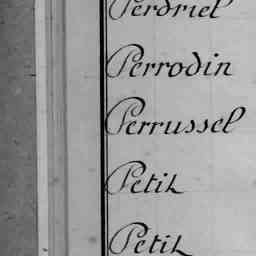 Perdriel
Perrodin
Perrussel
Petit
Petit